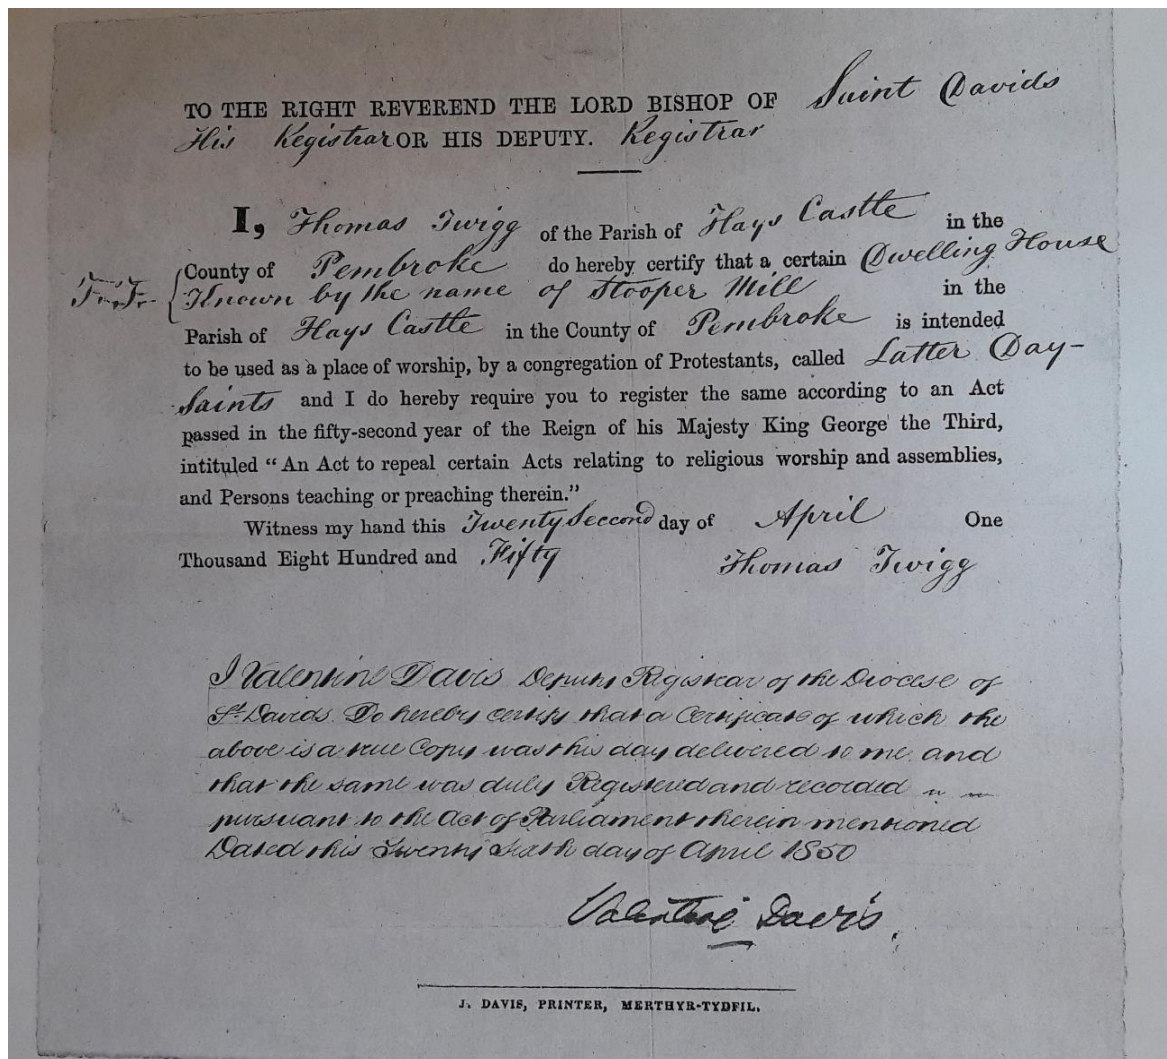 TO THE RIGHT REVEREND THE LORD BISHOP OF Saint Davids
His Registrar OR HIS DEPUTY. Registrar
I, Thomas Twigg of the Parish of Hays Castle in the
County of Pembroke do hereby certify that a certain Dwelling House
Known by the name of Stooper Mill in the
Parish of Hays Castle in the County of Pembroke is intended
to be used as a place of worship, by a congregation of Protestants, called Latter Day-
Saints and I do hereby require you to register the same according to an Act
passed in the fifty-second year of the Reign of his Majesty King George the Third,
intituled “An Act to repeal certain Acts relating to religious worship and assemblies,
and Persons teaching or preaching therein.”
Witness my hand this Twenty Second day of April One
Thousand Eight Hundred and Fifty Thomas Twigg
I Valentine Davis Deputy Registrar of the Diocese of
St. Davids Do hereby certify that a Certificate of which the
above is a true Copy was this day delivered to me and
that the same was duly Registered and recorded
pursuant to the Act of Parliament therein mentioned
Dated this Twenty Sixth day of April 1850
Valentine Davis.
J. DAVIS, PRINTER, MERTHYR-TYDFIL.